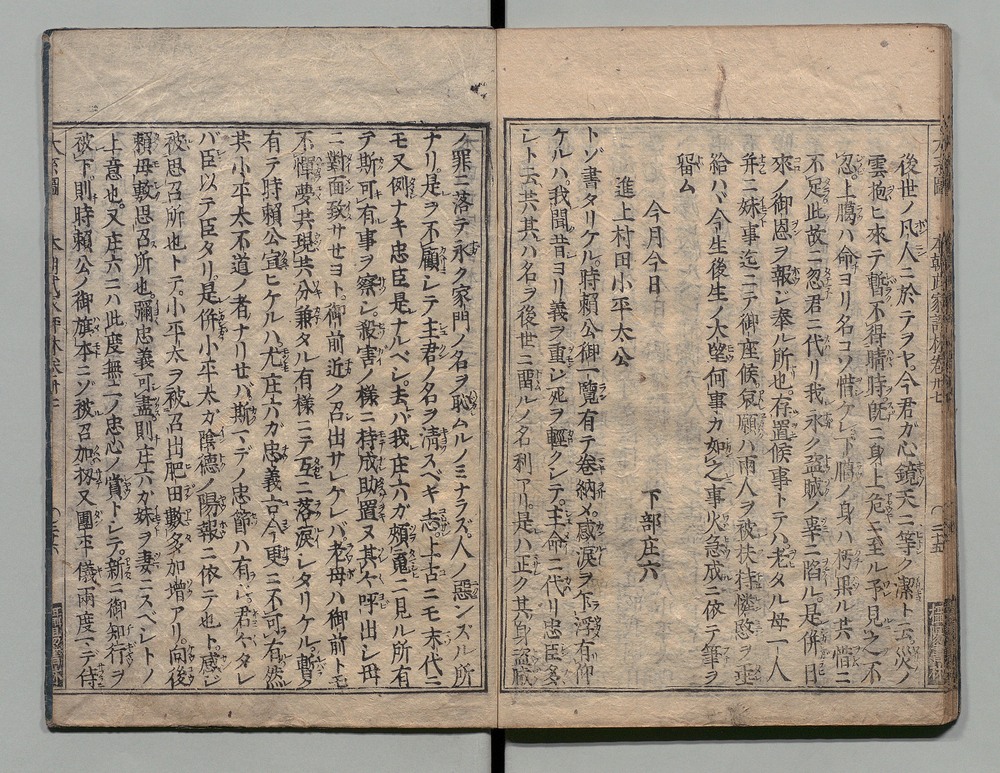 後世ノ凡人ニ於テヲヤ今君ガ心鏡天ニ等ク潔ト云災ノ
雲抱ヒ來テ暫不得晴時既ニ身上危ニ至ル予見之不
忍上臈ハ命ヨリ名コソ惜ケレ下臈ノ身ハ朽果ル共惜ニ
不足此故ニ忽君ニ代リ我永ク盗賊ノ辜ニ陷ル是併日
來ノ御恩ヲ報ジ奉ル所也存置候事トテハ老タル母一人
并ニ妹事迄ニテ御座候冥願ハ兩人ヲ被扶持憐愍ヲ垂
給ハヾ今生後生ノ大望何事カ如之事火急成ニ依テ筆ヲ
畱ム
今月今日
下部庄六
進上村田小平太公
トゾ書タリケル時賴公御一覽有テ卷納メ感涙ヲ下浮有仰
ケルハ我聞昔ヨリ義ヲ重ジ死ヲ輕クシテ主命ニ代リ忠臣多
シト云共其ハ名ヲ後世ニ畱ルノ名利アリ是ハ正ク其身盗賊
ノ罪ニ落テ永ク家門ノ名ヲ恥ムルノミナラズ人ノ惡ンズル所
ナリ是ヲ不顧シテ主君ノ名ヲ淸スベキ志上古ニモ末代ニ
モ又例ナキ忠臣是ナルベシ去バ我庄六ガ頰魂ニ見ル所有
テ斯可有事ヲ察シ殺害ノ樣ニ持成助置ヌ其ケ呼出シ母
ニ對面致サセヨト御前近ク召出サレケレバ老母ハ御前トモ
不憚夢共現共分兼タル有樣ニテ互ニ落涙シタリケル暫ク
有テ時賴公宣ヒケルハ尤庄六ガ忠義ハ古今更ニ不可有然
共小平太不道ノ者ナリセバ斯マデノ忠節ハ有ジ君々タレ
バ臣以テ臣タリ是併小平太ガ陰德ノ陽報ニ依テ也ト感ジ
被思召所也トテ小平太ヲ被召出肥田數多加增アリ向後
賴母敷思召所也彌忠義可盡則庄六ガ妹ヲ妻ニスベシトノ
上意也又庄六ニハ此度無二ノ忠心ノ賞トシテ新ニ御知行ヲ
被下則時賴公ノ御旗本ニゾ被召加扨又團平儀兩度マデ侍